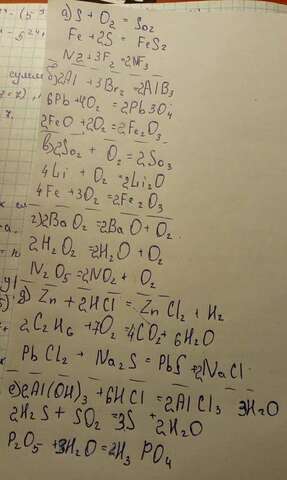 а) S + O₂ = SO₂
Fe + 2S = FeS₂
N₂ + 3F₂ = 2NF₃
б) 2Al + 3Br₂ = 2AlB₃
6Pb + 4O₂ = 2Pb3O₄
2FeO + 2O₂ = 2Fe₂O₃
в) 2SO₂ + O₂ = 2SO₃
4Li + O₂ = 2Li₂O
4Fe + 3O₂ = 2Fe₂O₃
г) 2BaO₂ = 2BaO + O₂
2H₂O₂ = 2H₂O + O₂
N₂O₅ = 2NO₂ + O₂
д) Zn + 2HCl = ZnCl₂ + H₂
2C₂H₆ + 7O₂ = 4CO₂ + 6H₂O
PbCl₂ + Na₂S = PbS + 2NaCl
е) 2Al(OH)₃ + 6HCl = 2AlCl₃ 3H₂O
2H₂S + SO₂ = 3S + 2H₂O
P₂O₅ + 3H₂O = 2H₃PO₄